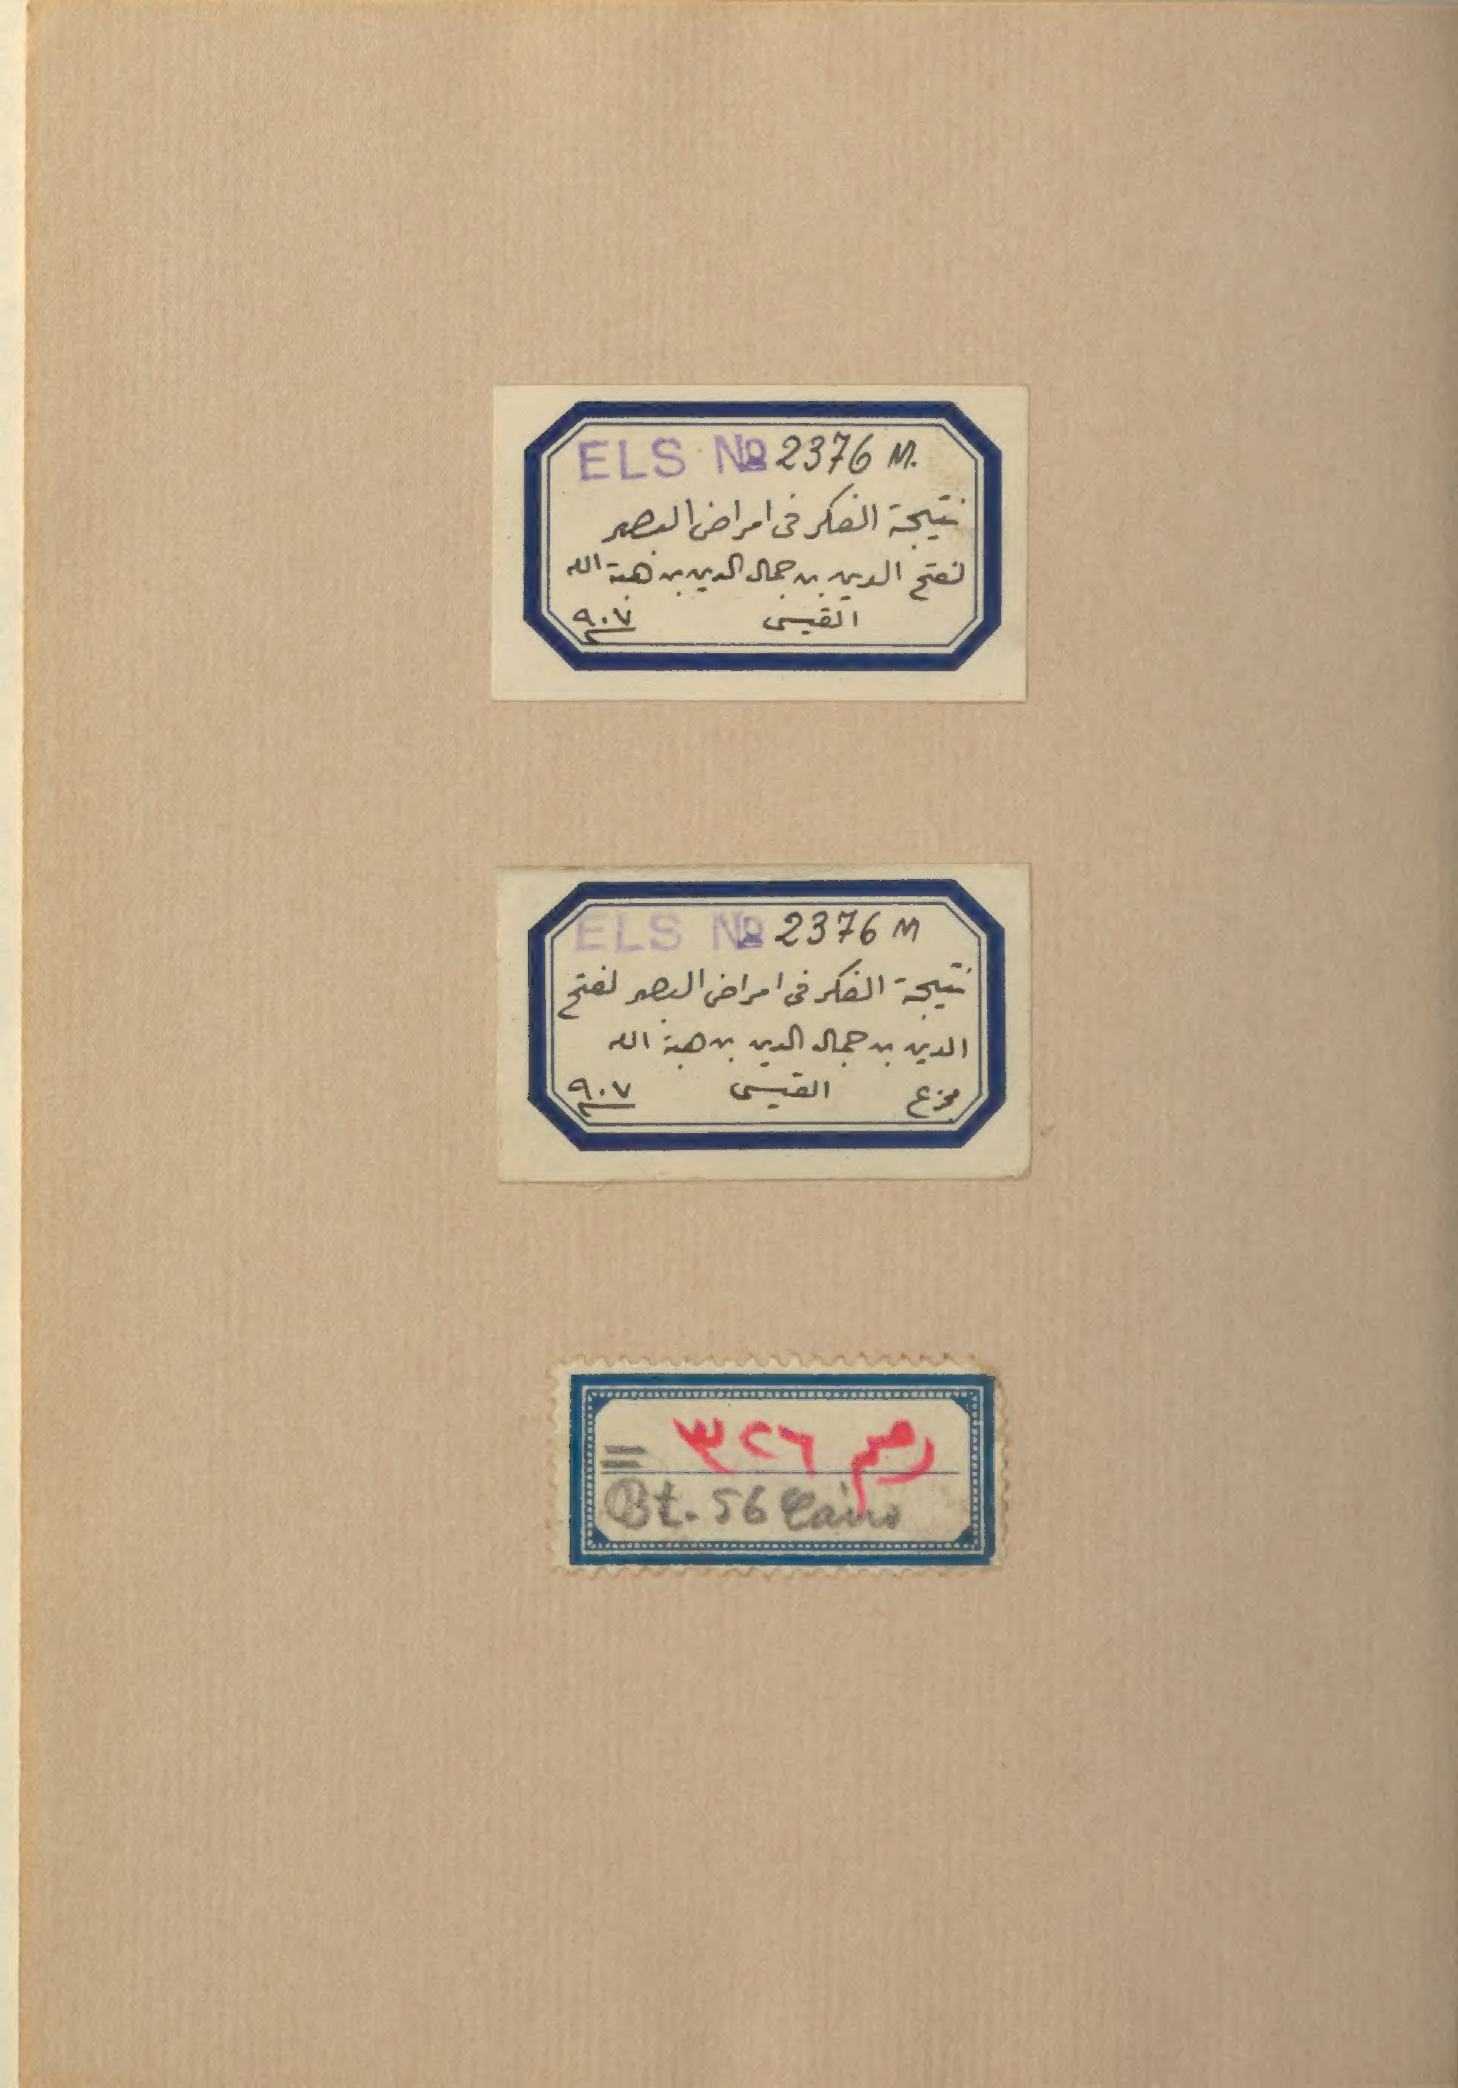 ELS № 2376 M.
نتيجة الفكر فى امراض البصر
لفتح الدين بن جمال الدين بن هبة الله
القيسى ٩٠٧
ELS № 2376 M
نتيجة الفكر فى امراض البصر لفتح
الدين بن جمال الدين بن هبة الله
القيسى ٩٠٧
رقم ٣٢٦
Bt. 56 Cairo